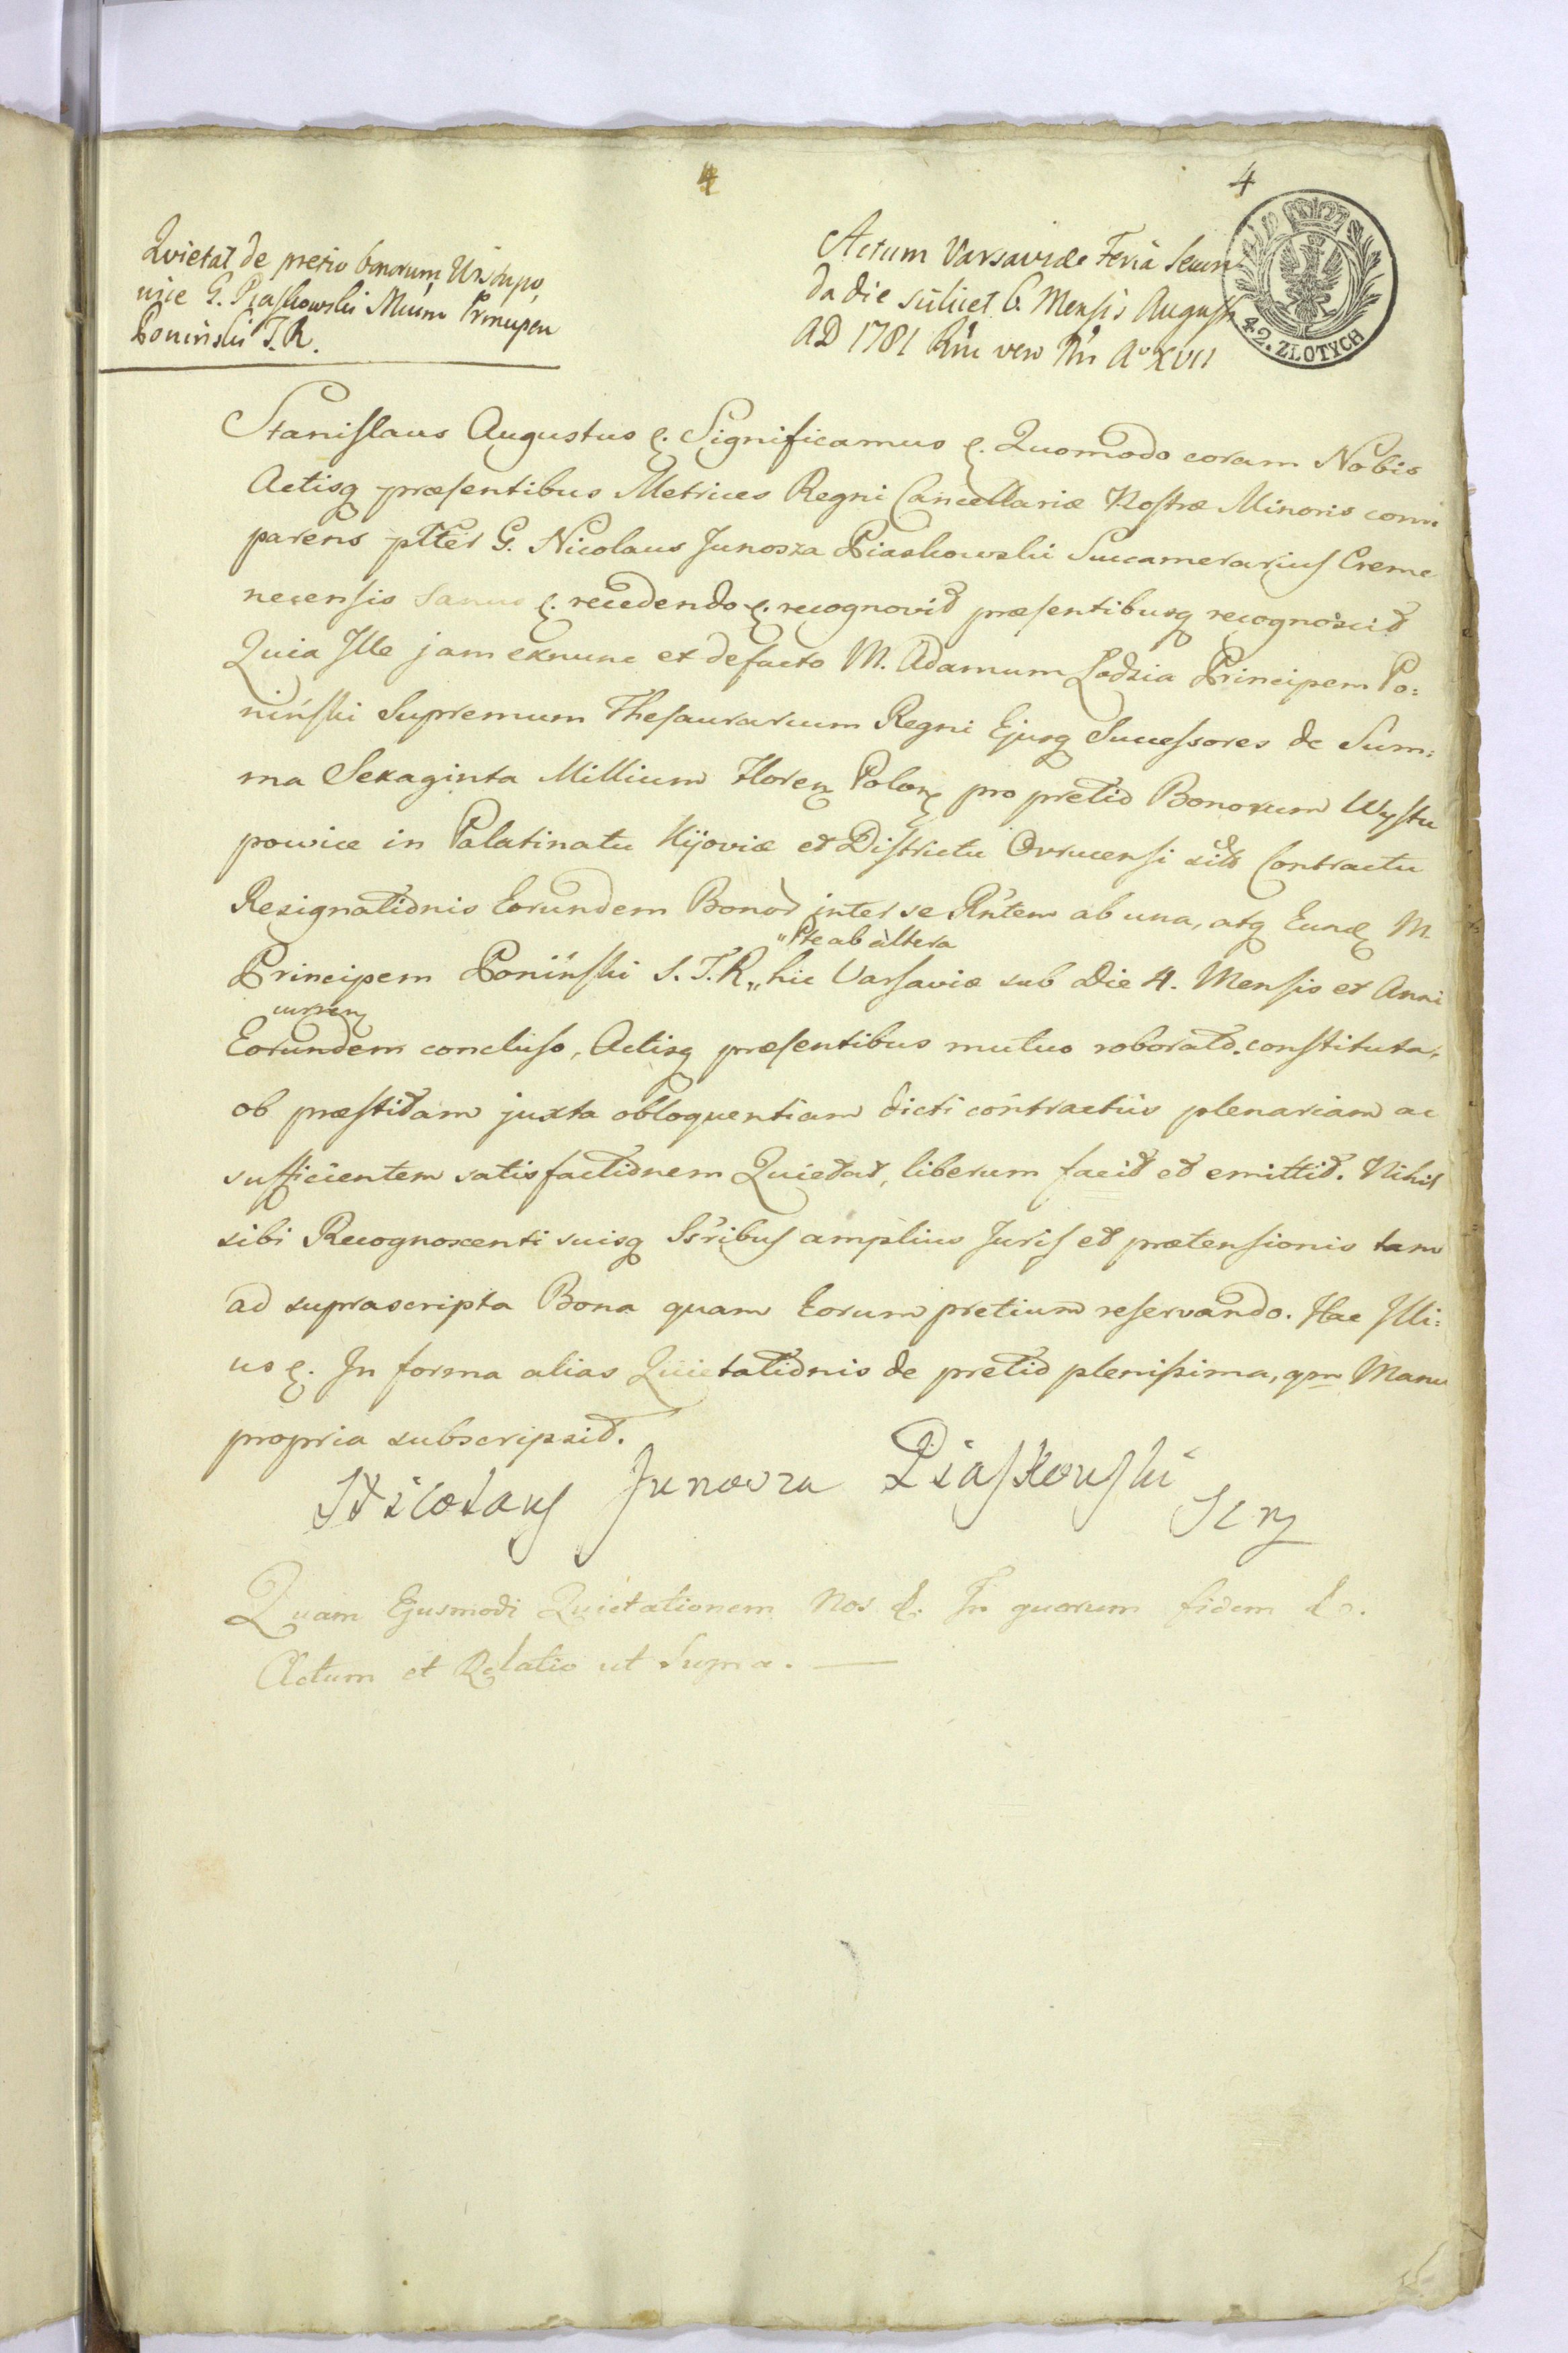 4
4
Quietat de pretio bonorum Wystupo,
wice G. Piaskowski Mnum Principem
Poniński T. R.
Actum Varsaviæ Feria Secun
da die scilicet 6. Mensis Augusti
AD 1781 Rni vero Nri Aº XVII
42. ZŁOTYCH
Stanislaus Augustus &. Significamus &. Quomodo coram Nobis
Actisq præsentibus Metrices Regni Cancellariæ Nostræ Minoris com
parens plter G. Nicolaus Junosza Piaskowski Succamerarius Creme
necensis Sanus &. recedendo &. recognovit præsentibusq recognoscit
Quia Ille jam exnunc et defacto M. Adamum Lodzia Principem Po:
niński Supremum Thesaurarium Regni Ejusq Successores de Sum:
ma Sexaginta Millium Floren Polon pro pretio Bonorum Wystu
powice in Palatinatu Kijoviæ et Districtu Ovrucensi sit Contractu
Resignationis Eorundem Bonor inter se Rntem ab una, atq Eund M.
"Pte ab altera
Principem Poniński S. T. R „ hic Varsaviæ sub Die 4. Mensis et Anni
curren
Eorundem concluso, Actisq præsentibus mutuo roborato. constituta,
ob præstitam juxta obloquentiam dicti contractus plenariam ac
sufficientem satisfactionem Quietat, liberum facit et emittit. Nihil
sibi Recognoscenti suisq Ssribus amplius Juris et prætensionis tam
ad suprascripta Bona quam Eorum pretium reservando. Hac Illi:
us &. In forma alias Quietationis de pretio plenissima, qm Manu
propria subscripsit.
Nicolaus Junosza Piaskowski
Quam Ejusmodi Quietationem Nos &. In quorum fidem &.
Actum et Relatio ut Supra.